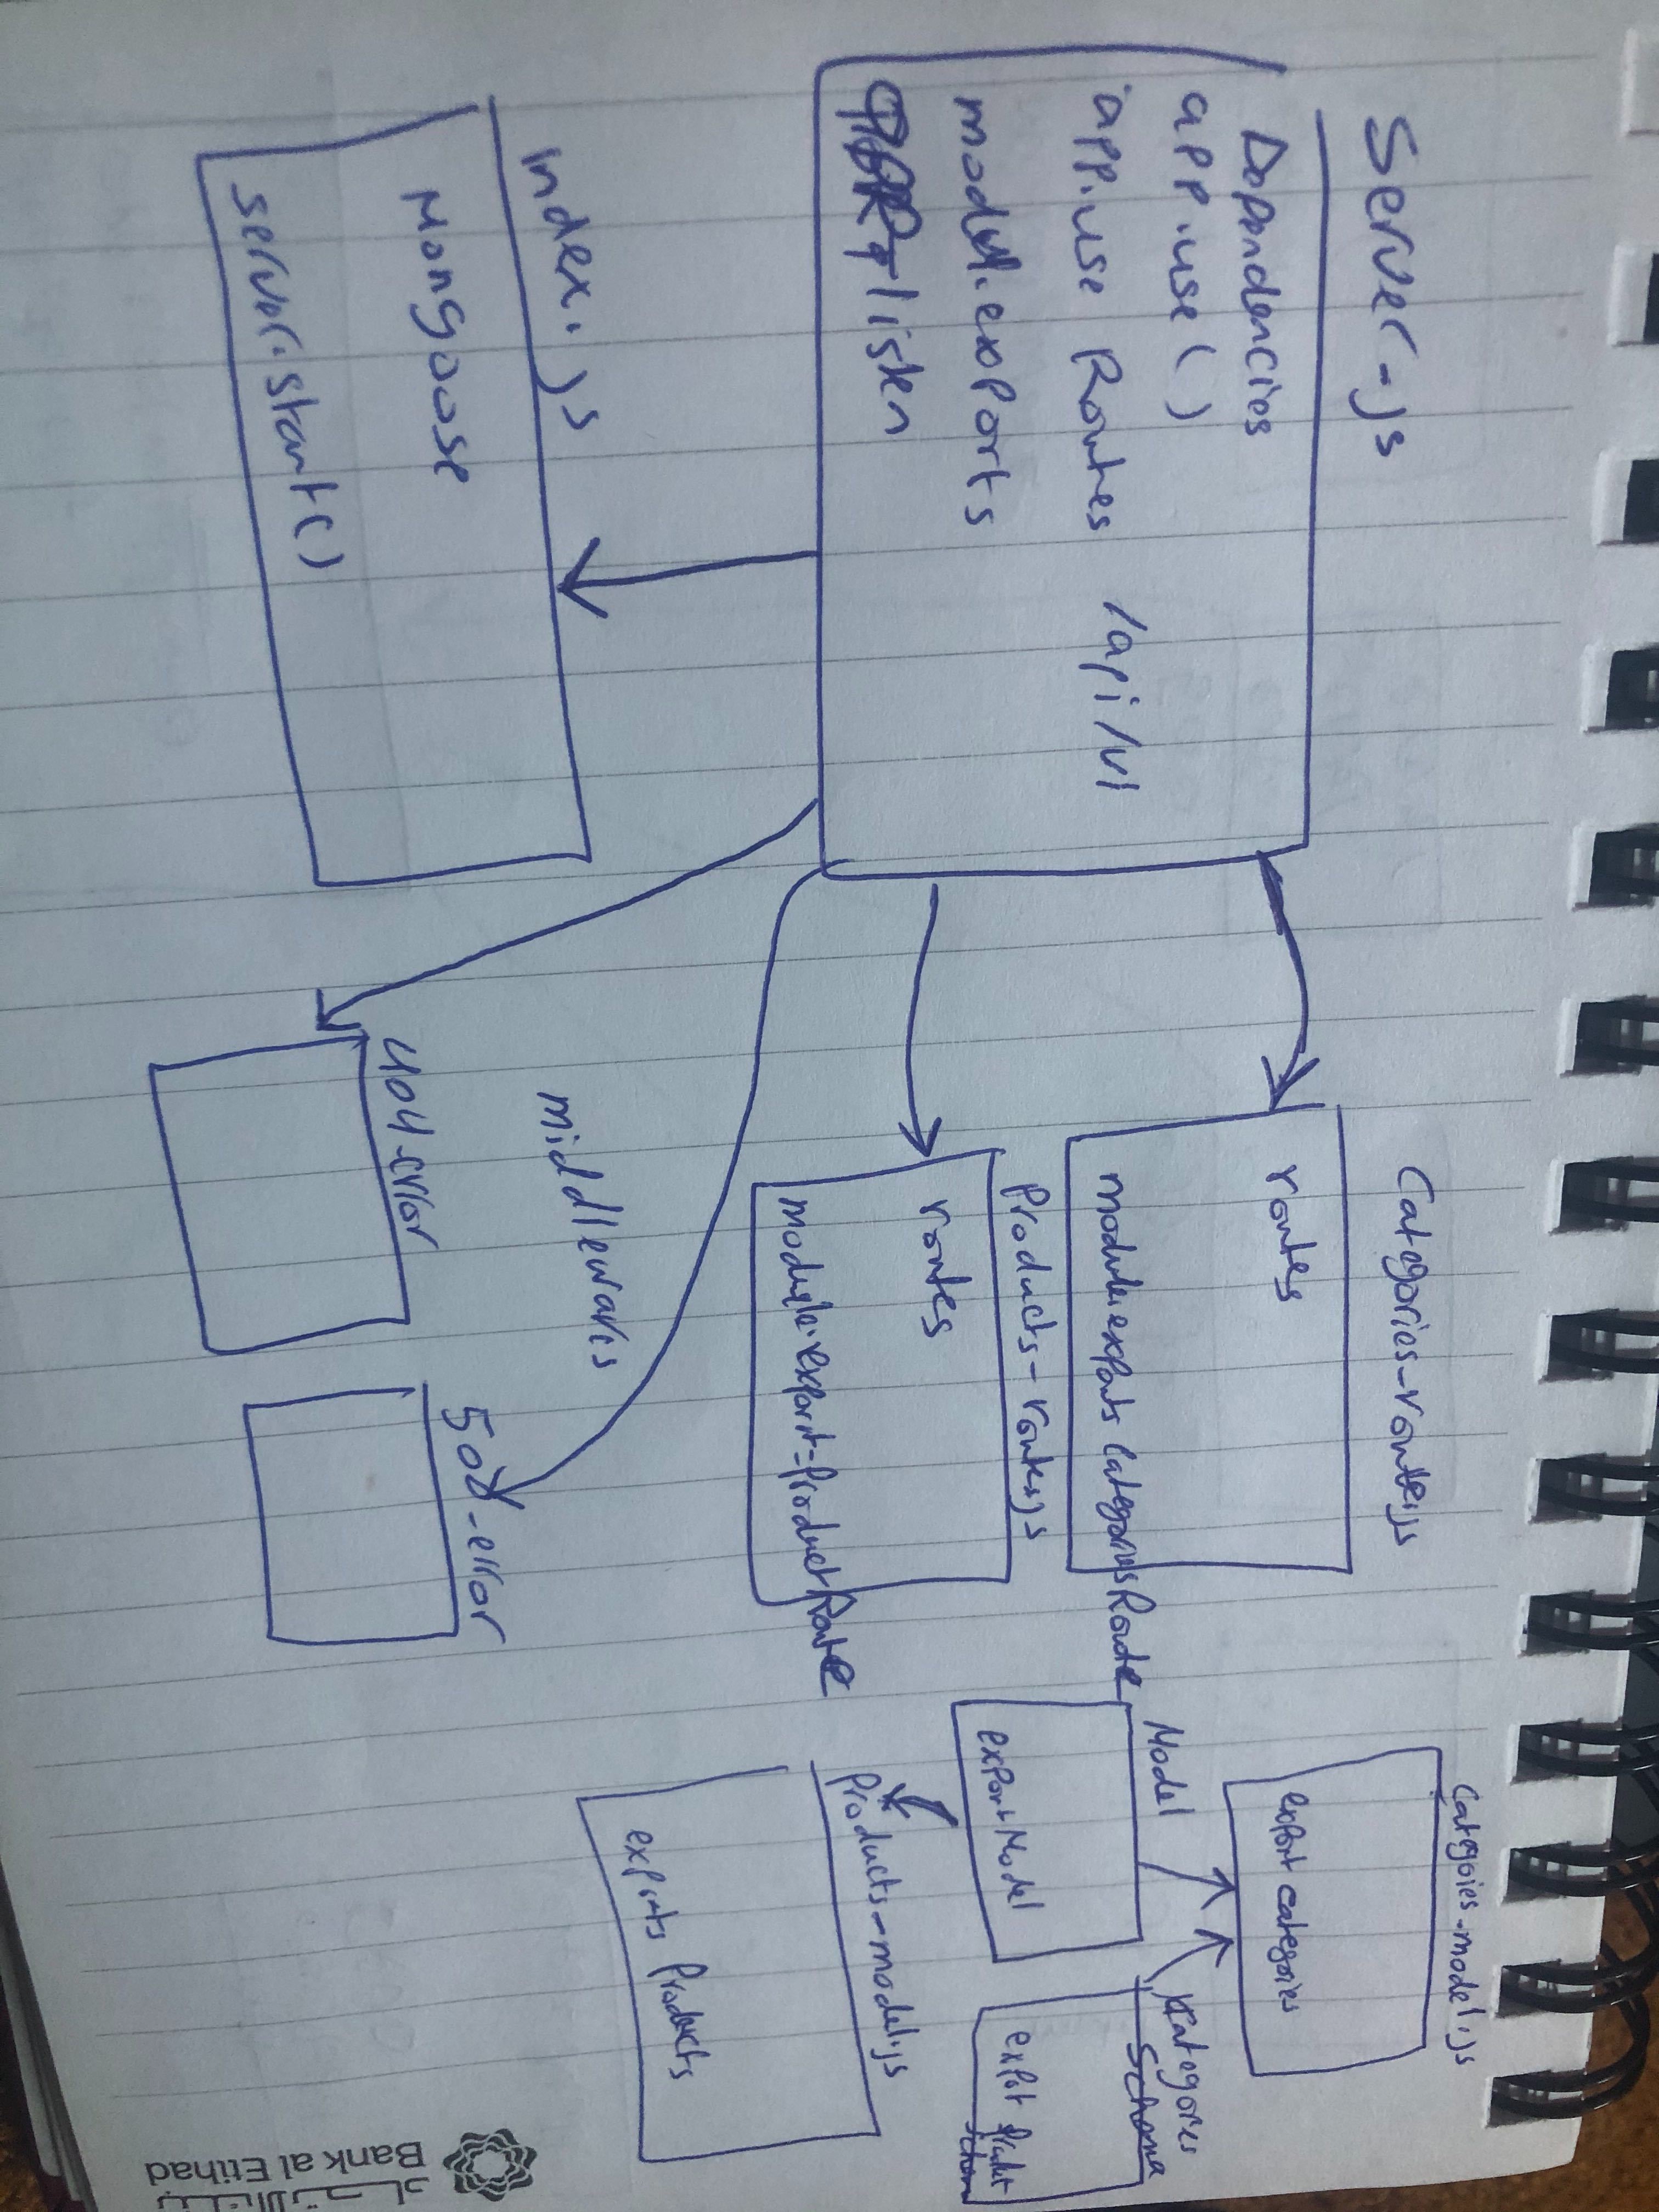 Server.js
Dependencies
app.use()
app.use Routes /api/v1
module.exports
listen
index.js
Mongoose
server.start()
Categories-route.js
routes
module.exports categoriesRoute
Products-route.js
routes
module.export=ProductRoute
middlewares
404-error
500-error
Categories-model.js
export categories
Model
export Model
Categories
Schema
export Product
Schema
Products-model.js
exports Products
بنك الاتحاد
Bank al Etihad